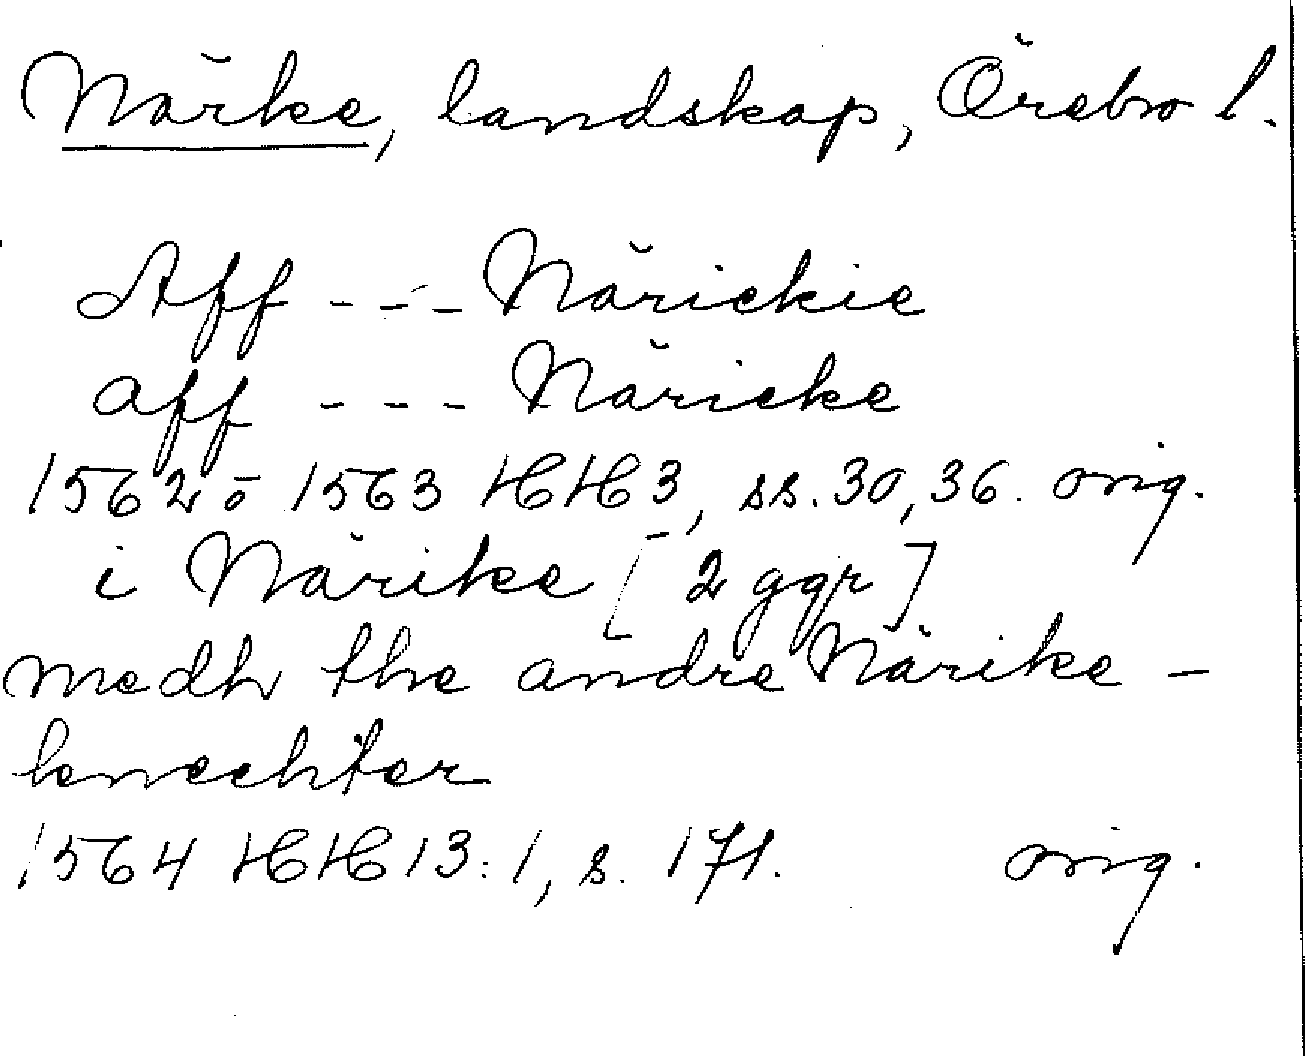 Närke, landskap, Örebro l.
Aff --- Närickie
aff --- Näricke
1562 o 1563 HH3, ss. 30, 36. orig.
i Närike [2 ggr]
medh the andre Närike-
knechter
1564 HH13:1, s. 171. orig.